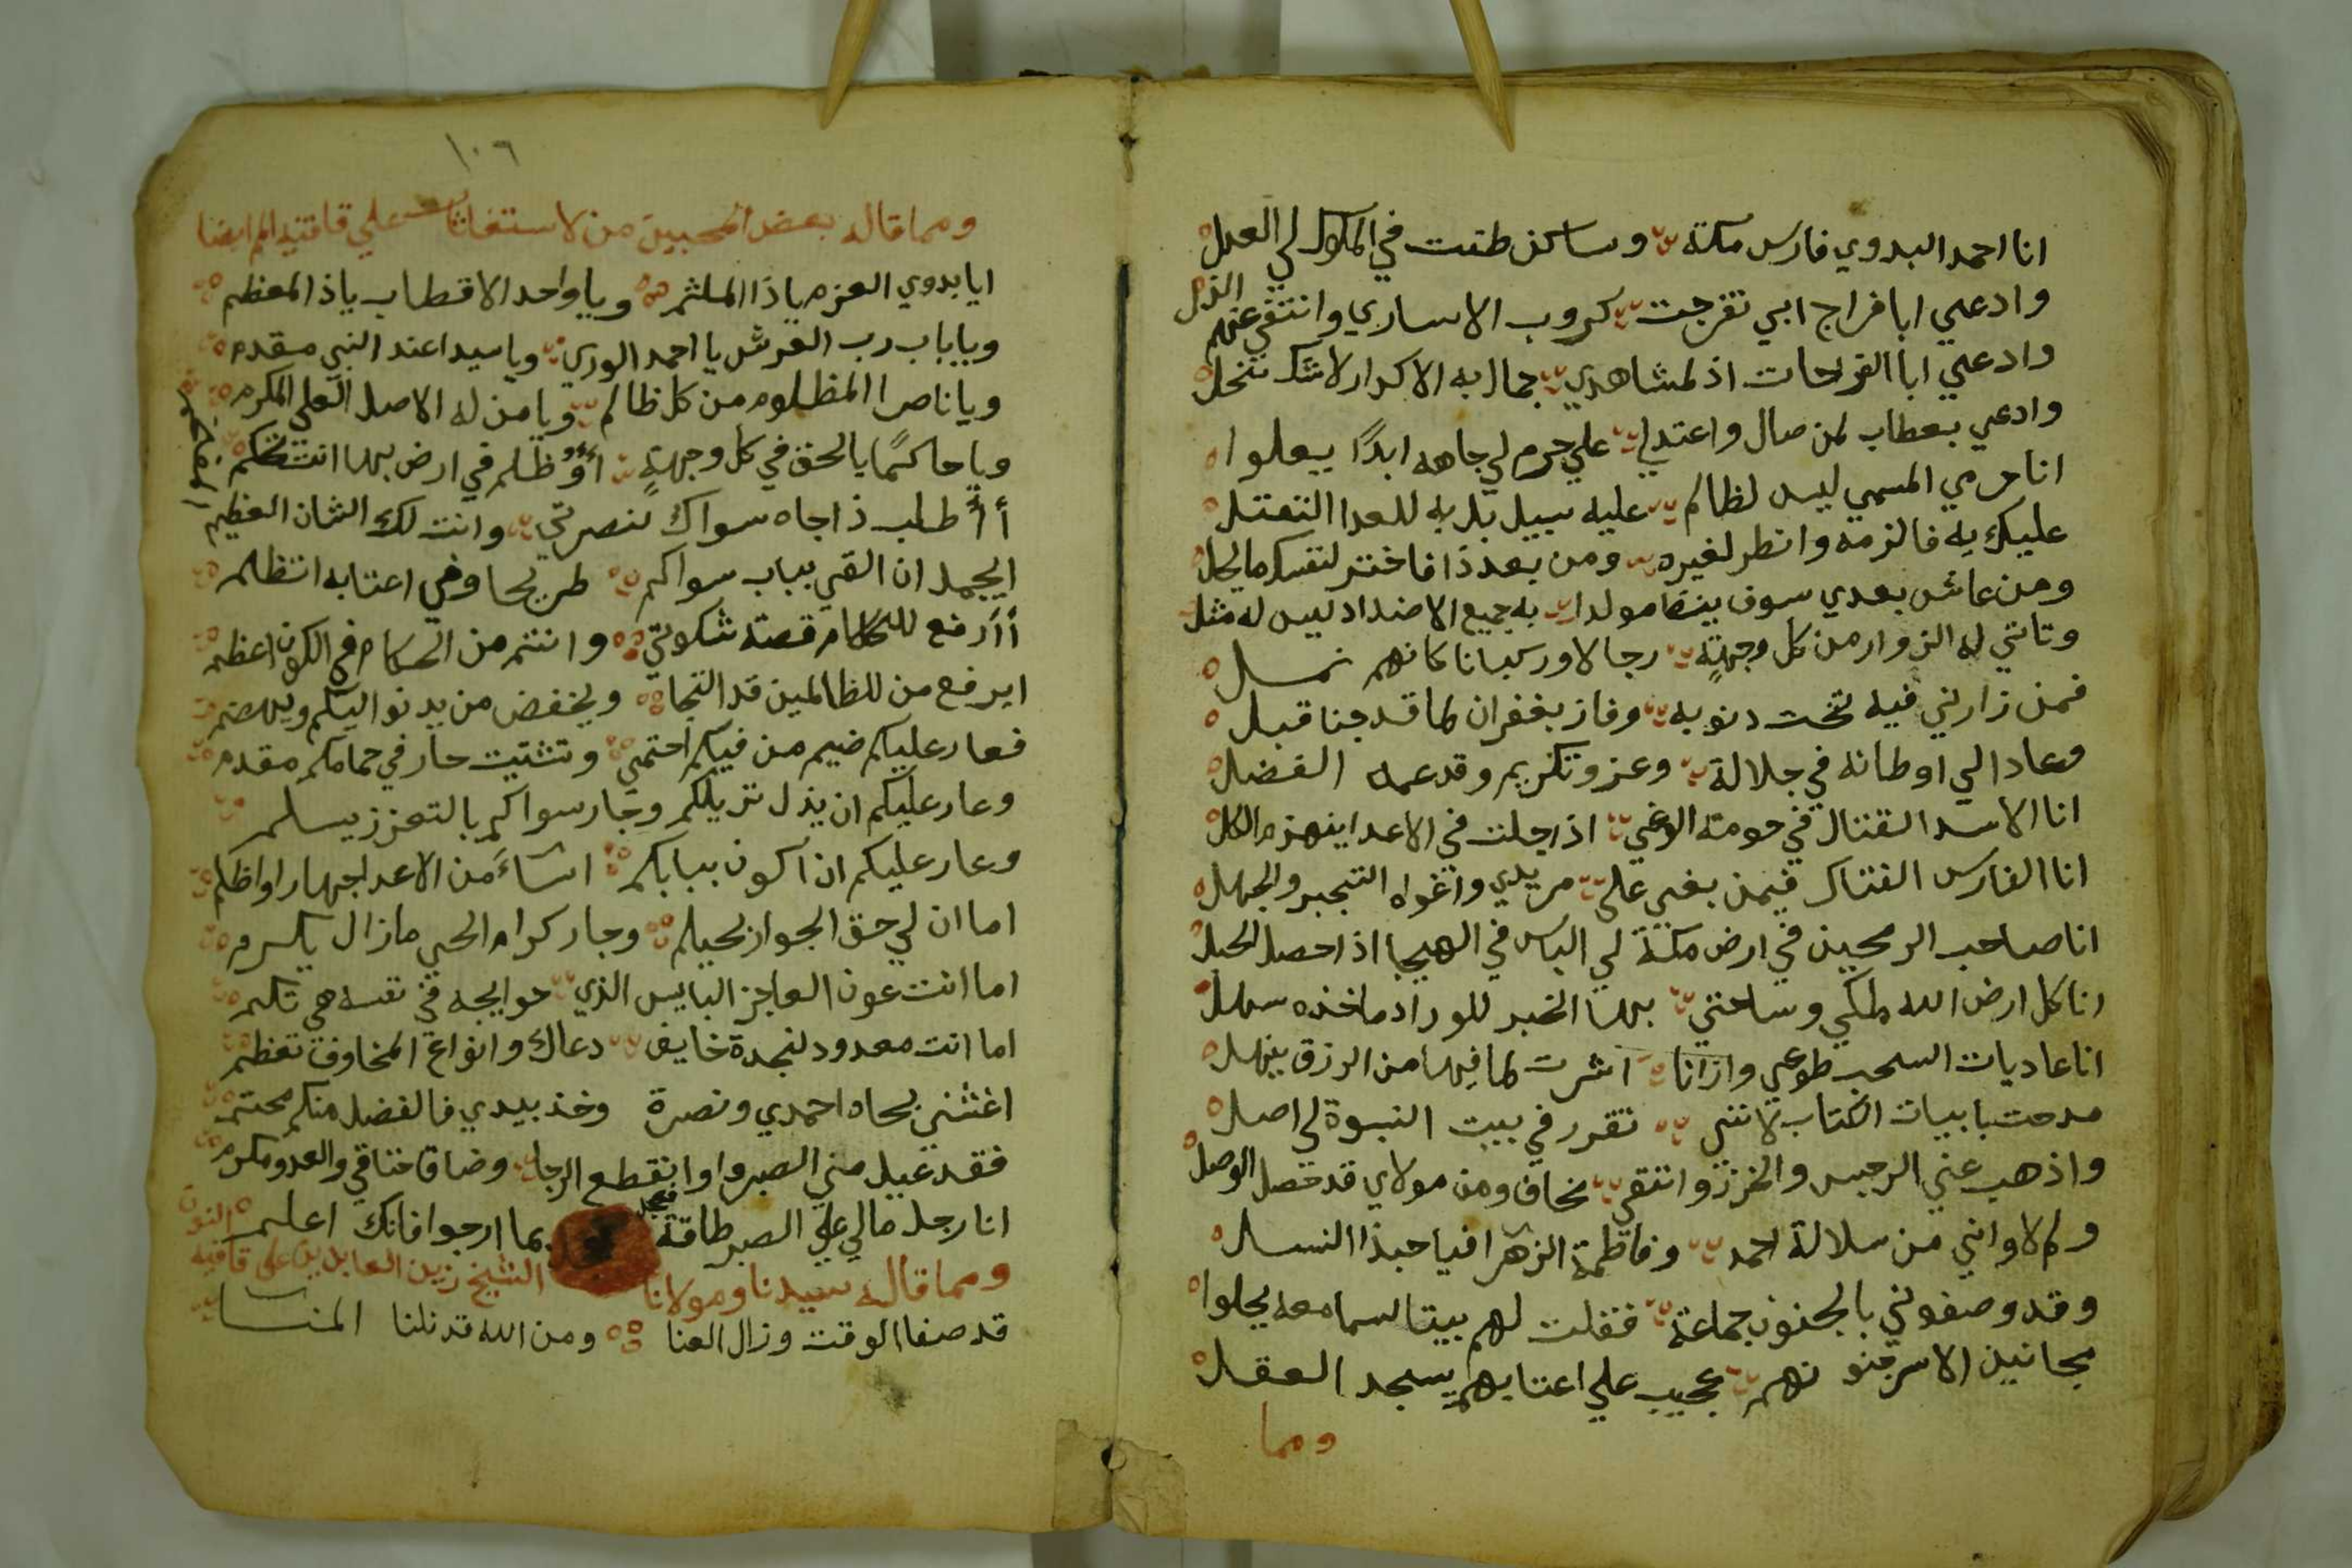 انا احمد البدوي فارس مكة وساكن طنت في الملوك لي العدل
وادعي ابا فراج ابي تفرجت كروب الاساري وانتفي عنهم الذل
وادعي ابا الفرحات اذ لمشاهدي جمال به الاكدار لاشك تنحل
وادعي بعطاب لمن صال واعتدي علي حرم لي جاهه ابدًا يعلوا
انا حرمي المسمي ليس لظالم عليه سبيل بل به للعدا القتل
عليك به فالزمه وانطر لغيره ومن بعد ذا فاختر لنفسك ما يحل
ومن عاش بعدي سوف ينضا مولدا به جميع الاضداد ليس له مثل
وتاتي له الزوار من كل وجهةٍ رجالا وركبانا كانهم نمل
فمن زارني فيه تمحت دنوبه وفاز بغفران لما قد جنا قبل
وعاد الي اوطانه في جلالة وعز وتكريم وقد عمه الفضل
انا الاسد القتال في حومة الوغي اذا جلت في الاعدا ينهزم الكل
انا الفارس الفتاك فيمن بغي علي مريدي واغواه التجبر والجهل
انا صاحب الرمحين في ارض مكة لي الباس في الهيجا اذا حصل الحبل
انا كل ارض الله ملكي وساحتي بها الخبر للوراد ماخذه سهل
انا عاديات السحب طوعي وان انا اشرت لما فيها من الرزق ينهل
مدحت بابيات الكتاب لانني تقرر في بيت النبوة لي اصل
واذهب عني الرجس والخزز وانتقي مخاف ومن مولاي قد حصل الوصل
ولم لا واني من سلالة احمد وفاطمة الزهرا فيا حبذا النسل
وقد وصفوني بالجنون جماعة فقلت لهم بيتا لسامعه يحلوا
مجانين الا سر جنونهم عجيب علي اعتابهم يسجد العقل
ومما
١٠٦
ومما قاله بعض المحبين من الاستغاثات علي قافية الميم ايضا
ايا بدوي العزم يا ذا الملثم ويا واحد الاقطاب يا ذ المعظم
ويا باب رب العرش يا احمد الوري ويا سيدا عند النبي مقدم
ويا ناصرا المظلوم من كل ظالم ويا من له الاصل العلي المكرم
ويا حاكمًا بالحق في كل وجهةٍ أؤظلم في ارض بها انت تحكم
أأطلب ذا جاه سواك لنصرتي وانت لك الشان العظيم
ايجمل ان القي بباب سواكم طريحا وفي اعتابه اتظلم
أأرفع للحكام قصة شكوتي وانتم من الحكام في الكون اعظم
ايرفع من للظالمين قد التجا ويخفض من يدنو اليكم ويهضم
فعار عليكم ضيم من فيكم احتمي وتشتيت جار في حماكم مقدم
وعار عليكم ان يذل نزيلكم وجار سواكم بالتعزز يسلم
وعار عليكم ان اكون ببابكم اساءَ من الاعدا جهارا واظلم
اما ان لي حق الجوار بحيكم وجار كرام الحي مازال يكرم
اما انت عون العاجز البايس الذي حوايجه في نفسه هي تكتم
اما انت معدود لنجدة خايف دعاك وانواع المخاوف تعظم
اغثني بجاه احمدي ونصرة وخذ بيدي فالفضل منكم محتم
فقد عيل مني الصبر وانقطع الرجا وضاق خناقي والعدو مكرم
انا رجل مالي علي الصبر طاقة فعجل بما ارجوا فانك اعلم
ومما قاله سيدنا ومولانا الشيخ زين العابدين علي قافية النون
قد صفا الوقت وزال العنا ومن الله قد نلنا المنا